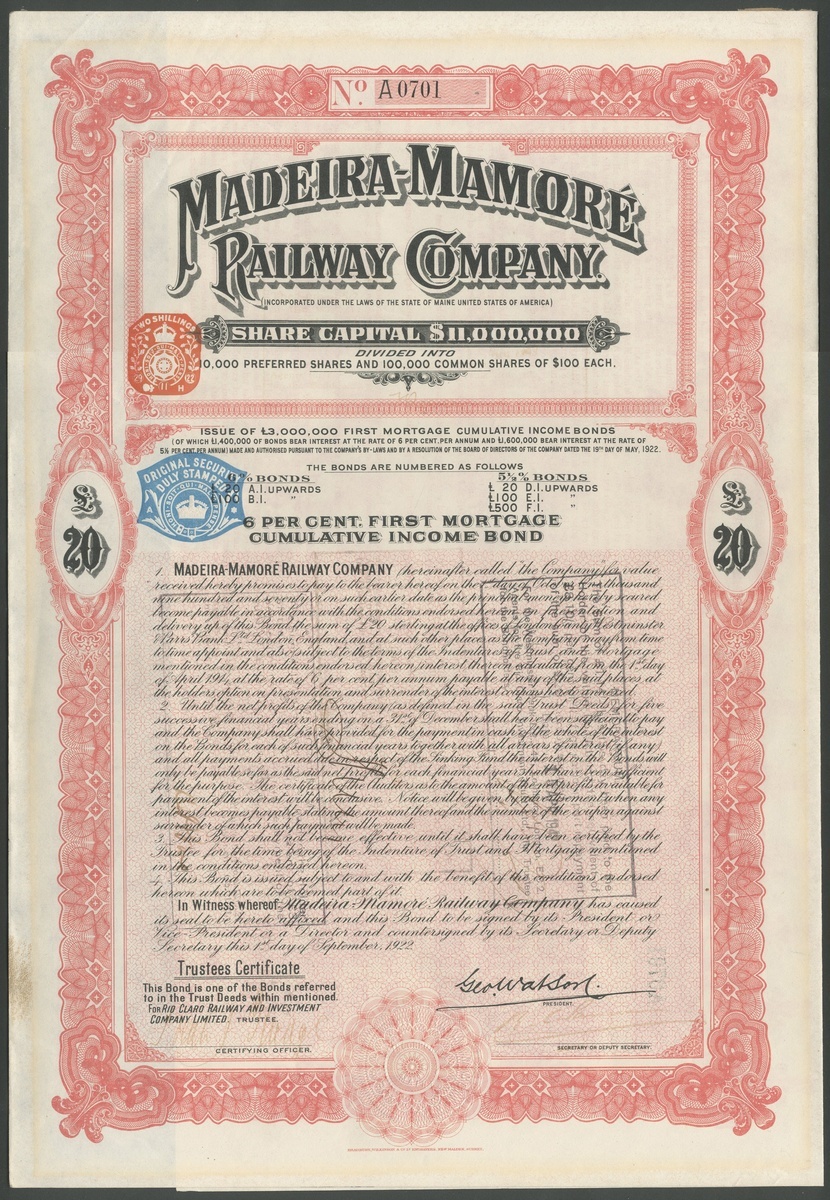 No. A0701
MADEIRA-MAMORÉ
RAILWAY COMPANY.
(INCORPORATED UNDER THE LAWS OF THE STATE OF MAINE UNITED STATES OF AMERICA)
SHARE CAPITAL $11,000,000
DIVIDED INTO
10,000 PREFERRED SHARES AND 100,000 COMMON SHARES OF $100 EACH.
TWO SHILLINGS
ISSUE OF £3,000,000 FIRST MORTGAGE CUMULATIVE INCOME BONDS
(OF WHICH £1,400,000 OF BONDS BEAR INTEREST AT THE RATE OF 6 PER CENT. PER ANNUM AND £1,600,000 BEAR INTEREST AT THE RATE OF
5½ PER CENT. PER ANNUM) MADE AND AUTHORISED PURSUANT TO THE COMPANY'S BY-LAWS AND BY A RESOLUTION OF THE BOARD OF DIRECTORS OF THE COMPANY DATED THE 19TH DAY OF MAY, 1922.
THE BONDS ARE NUMBERED AS FOLLOWS
ORIGINAL SECURITY
DULY STAMPED
6% BONDS 5½% BONDS
£ 20 A.1. UPWARDS £ 20 D.1. UPWARDS
£100 B.1. £100 E.1. "
£500 F.1. "
6 PER CENT. FIRST MORTGAGE
CUMULATIVE INCOME BOND
£
20
£
20
1. MADEIRA-MAMORÉ RAILWAY COMPANY (hereinafter called "the Company") for value
received hereby promises to pay to the bearer hereof on the day of One thousand
nine hundred and seventy or on such earlier date as the principal moneys hereby secured
become payable in accordance with the conditions endorsed hereon on presentation and
delivery up of this Bond the sum of £20 sterling at the offices of London County Westminster
& Parrs Bank Ltd London, England, and at such other places as the Company may from time
to time appoint and also (subject to the terms of the Indenture of Trust and Mortgage
mentioned in the conditions endorsed hereon) interest thereon calculated from the 1st day
of April 1914, at the rate of 6 per cent. per annum payable at any of the said places at
the holders option on presentation and surrender of the interest coupons hereto annexed.
2. Until the net profits of the Company (as defined in the said Trust Deeds) for five
successive financial years ending on a 31st of December shall have been sufficient to pay
and the Company shall have provided for the payment in cash of the whole of the interest
on the Bonds for each of such financial years together with all arrears of interest (if any)
and all payments accrued due in respect of the Sinking Fund the interest on the Bonds will
only be payable so far as the said net profits for each financial year shall have been sufficient
for the purpose. The certificate of the Auditors as to the amount of the net profits available for
payment of the interest will be conclusive. Notice will be given by advertisement when any
interest becomes payable stating the amount thereof and the number of the coupon against
surrender of which such payment will be made.
3. This Bond shall not become effective until it shall have been certified by the
Trustee for the time being of the Indenture of Trust and Mortgage mentioned
in the conditions endorsed hereon.
4. This Bond is issued subject to and with the benefit of the conditions endorsed
hereon which are to be deemed part of it.
In Witness whereof Madeira Mamoré Railway Company has caused
its seal to be hereto affixed and this Bond to be signed by its President or
Vice-President or a Director and countersigned by its Secretary or Deputy
Secretary this 1st day of September, 1922.
Trustees Certificate
This Bond is one of the Bonds referred
to in the Trust Deeds within mentioned.
FOR RIO CLARO RAILWAY AND INVESTMENT
COMPANY LIMITED. TRUSTEE.
CERTIFYING OFFICER.
Geo. Watson.
PRESIDENT.
SECRETARY OR DEPUTY SECRETARY.